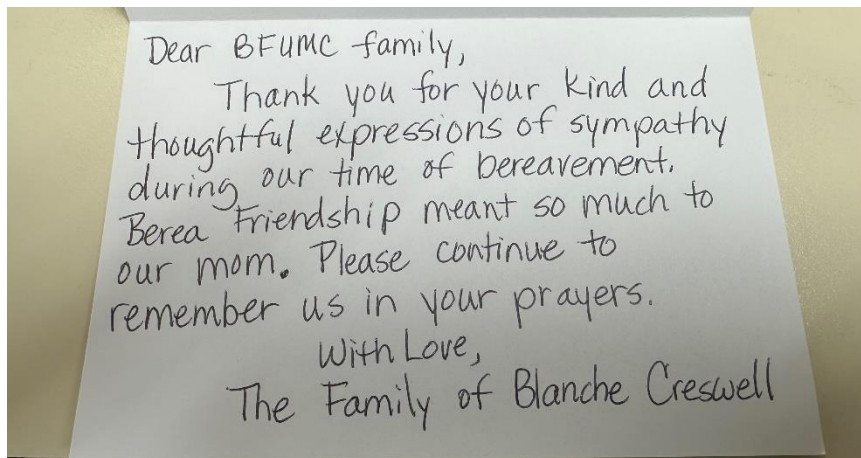 Dear BFUMC family,
Thank you for your kind and
thoughtful expressions of sympathy
during our time of bereavement.
Berea Friendship meant so much to
our mom. Please continue to
remember us in your prayers.
With Love,
The Family of Blanche Creswell